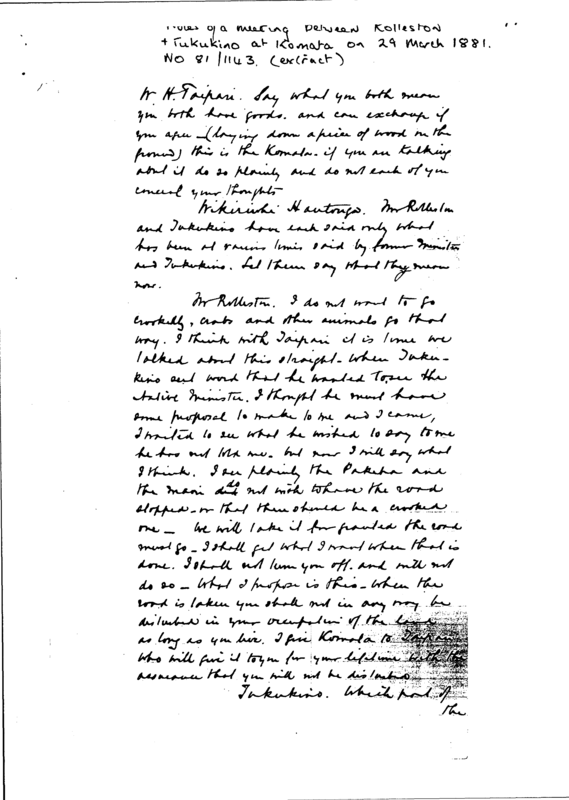 Notes of a meeting between Rolleston
+ Tukukino at Komata on 29 March 1881.
NO 81/1143. (extract)
W. H. Taipari. Say what you both mean
you both have goods. and can exchange if
you agree — (laying down a piece of wood on the
ground) this is the Komata. if you are talking
about it do so plainly and do not each of you
conceal your thoughts
Hautonga. Mr Rolleston
and Tukukino have each said only what
has been at various times said by former Minister
and Tukukino. Let them say what they mean
now.
Mr Rolleston. I do not want to go
crookedly, crabs and other animals go that
way. I think with Taipari it is time we
talked about this straight. When Tuku-
kino sent word that he wanted to see the
Native Minister. I thought he must have
some proposal to make to me and I came,
I waited to see what he wished to say to me
he has not told me. but now I will say what
I think. I see plainly the Pakeha and
the maori do not wish to have the road
stopped — or that there should be a crooked
one — We will take it for granted the road
must go — I shall get what I want when that is
done. I shall not turn you off. and will not
do so — What I propose is this — When the
road is taken you shall not in any way be
disturbed in your occupation of the land
as long as you live. I give Komata to Taipari
who will give it to you for your lifetime with the
assurance that you will not be disturbed
Tukukino. Which part of
the